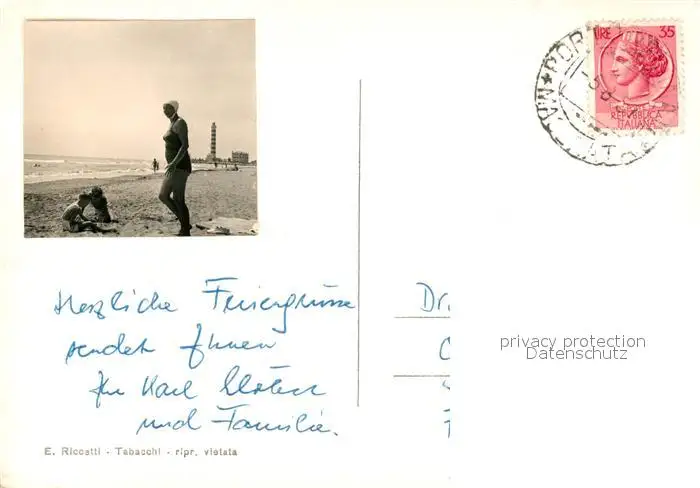 LIRE 35
REPUBBLICA
ITALIANA
Herzliche Feriengrüsse
sendet Ihnen
Ihr Karl
und Familie.
Dr.
privacy protection
Datenschutz
E. Riccetti - Tabacchi - ripr. vietata